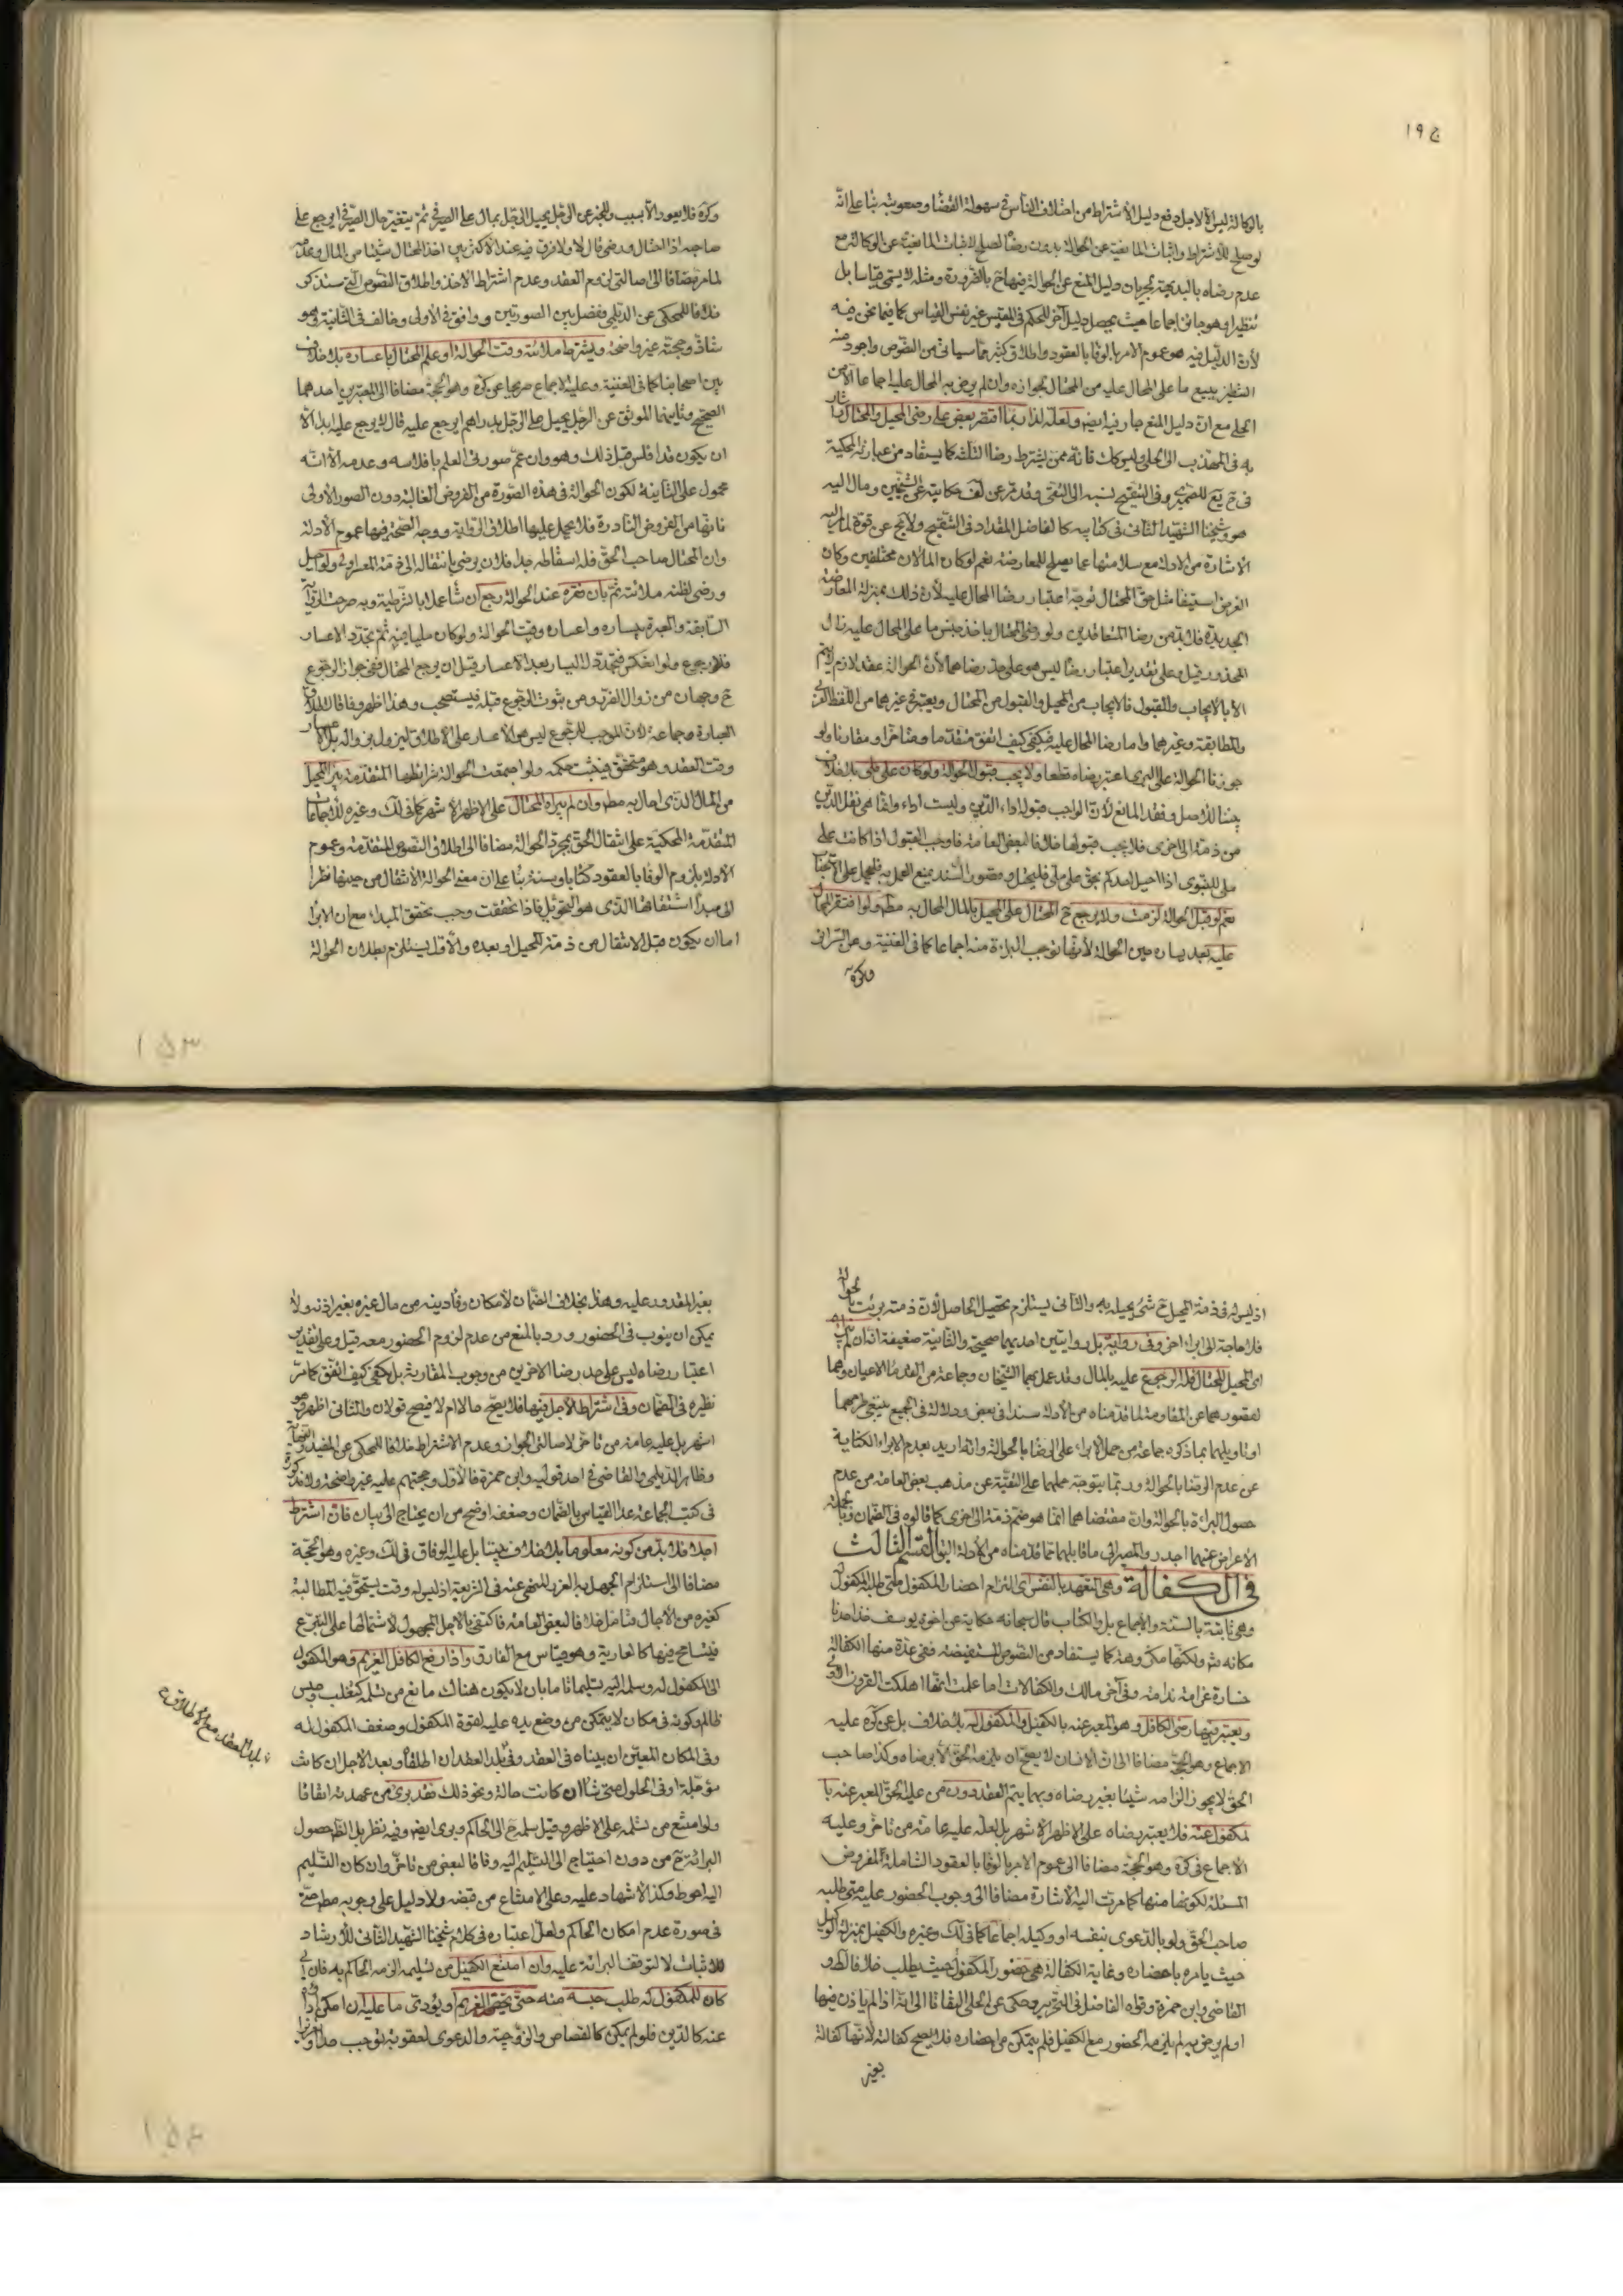 بالوكالة ليس الا لاجل دفع دليل الاشتراط من اختلاف الناس في سهولة القضاء وصعوبته بناء على انّه
لو صلح للاشتراط واثبات المانعية عن الحوالة بدون رضاه لصلح لاثبات المانعية عن الوكالة مع
عدم رضاه بالبديهة لجريان دليل المنع عن الحوالة فيها ح بالضرورة ومثله لا يسمّى قياسا بل
تنظيرا وهو جائز اجماعا حيث يحصل دليل آخر للحكم في المقيس غير نفس القياس كما فيما نحن فيه
لأن الدليل فيه هو عموم الامر بالوفاء بالعقود واطلاق كثير مما سياتي من النصوص واجود منه
التنظير ببيع ما على المحال عليه من المحتال بجوازه وان لم يرض به المحال عليه اجماعا الا من
الحلي مع ان دليل المنع جار فيه ايضا ولعلّه لذا ربما اقتصر بعض على رضى المحيل والمحتال
في المهذب الى الحلي وليس كك فانه ممن يشترط رضا الثلثة كما يستفاد من عبارته المحكية
وفي التنقيح نسبه الى التقي وقد مرّ عن لف حكايته عن الشيخين ومال اليه
هو وشيخنا الشهيد الثاني في كتابيه كالفاضل المقداد في التنقيح ولا يخ عن قوة لما مر اليه
الاشارة من الادلة مع سلامتها عما يصلح للمعارضة نعم لو كان المالان مختلفين وكان
الغرض استيفاء مثل حق المحتال توجّه اعتبار رضا المحال عليه لأن ذلك بمنزلة المعاوضة
الجديدة فلا بد من رضا المتعاقدين ولو رضي المحتال باخذ جنس ما على المحال عليه زال
المحذور قيل وعلى تقدير اعتبار رضاه ليس هو على حدّ رضاهما لأن الحوالة عقد لازم لا يتم
الا بالايجاب والقبول فالايجاب من المحيل والقبول من المحتال ويعتبر فيهما من اللفظ العربي
والمطابقة وغيرهما واما رضا المحال عليه فيكفي كيف اتفق متقدما ومتاخرا ومقارنا ولو
جوزنا الحوالة على البرى اعتبر رضاه قطعا ولا يجب قبول الحوالة ولو كان على ملي بلا خلاف
بيننا للاصل وفقد المانع لأن الواجب قبوله اداء الدين وليست اداء وانما هي نقل الدين
من ذمة الى اخرى فلا يجب قبولها خلافا لبعض العامة فاوجب القبول اذا كانت على
ملي للنبوي اذا احيل احدكم بحق على ملي فليحتل وقصور السند يمنع العمل به فليحمل على الاستحباب
نعم لو قبل الحوالة لزمت ولا يرجع ح المحتال على المحيل بالمال المحال به مطلقا ولو افتقر المحال
عليه بعد يساره حين الحوالة لأنها توجب البراءة منه اجماعا كما في الغنية وعن السرائر
وكره
وكره فلا يعود الا بسبب وللخبر عن الرجل يحيل الرجل بمال على الصيرفي ثم يتغير حال الصيرفي ايرجع على
صاحبه اذا احتال ورضي قال لا ولا فرق فيه عند الاكثر بين اخذ المحتال شيئا من المال وعدمه
لما مر مضافا الى اصالتي لزوم العقد وعدم اشتراط الاخذ واطلاق النصوص التي ستذكر
خلافا للمحكي عن الديلمي ففصل بين الصورتين ووافق في الاولى وخالف في الثانية وهو
شاذ وحجته غير واضحة ويشترط ملائته وقت الحوالة او علم المحتال باعساره بلا خلاف
بين اصحابنا كما في الغنية وعليه الاجماع صريحا عن كره وهو الحجة مضافا الى المعتبرين احدهما
الصحيح وثانيهما الموثق عن الرجل يحيل على الرجل بدراهم ايرجع عليه قال لا يرجع عليه ابدا الا
ان يكون قد افلس قبل ذلك وهو وان عم صورتي العلم بافلاسه وعدمه الا انه
محمول على الثانية لكون الحوالة في هذه الصورة من الفروض الغالبة دون الصور الاولى
فانها من الفروض النادرة فلا يحمل عليها اطلاق الرواية ووجه الصحة فيها عموم الادلة
وان المحتال صاحب الحق فله اسقاطه جدا فلان يرضى بانتقاله الى ذمة المعسر اولى ولو احيل
ورضي لظنه ملائته ثم بان فقره عند الحوالة رجع ان شاء عملا بالشرطية وبه صرحت الرواية
السابقة والعبرة بيساره واعساره وقت الحوالة ولو كان مليا فيه ثم تجدد الاعسار
فلا رجوع ولو انعكس فتجدد اليسار بعد الاعسار قبل ان يرجع المحتال ففي جواز الرجوع
ح وجهان من زوال الضرر ومن ثبوت الرجوع قبله فيستصحب وهذا اظهر وفاقا لاطلاق
العبارة وجماعة لأن الموجب للرجوع ليس هو الاعسار على الاطلاق ليزول بزواله بل الاعسار
وقت العقد وهو متحقق فيثبت حكمه ولو اجتمعت الحوالة شرايطها المتقدمة برئ المحيل
من المال الذي احال به مطلقا وان لم يبرأه المحتال على الاظهر الاشهر كما في لك وغيره للاجماعات
المتقدمة المحكية على انتقال الحق بمجرد الحوالة مضافا الى اطلاق النصوص المتقدمة وعموم
الادلة بلزوم الوفاء بالعقود كتابا وسنة بناء على ان معنى الحوالة الانتقال من حينها نظرا
الى مبدأ اشتقاقها الذي هو التحويل فاذا تحققت وجب تحقق المبداء مع ان الابراء
اما ان يكون قبل الانتقال من ذمة المحيل او بعده والأول يستلزم بطلان الحوالة
اذ ليس له في ذمة المحيل ح شيء يحيله به والثاني يستلزم تحصيل الحاصل لأن ذمته برئت بالحوالة
فلا حاجة الى ابراء اخر وفي رواية بل روايتين احديهما صحيحة والثانية ضعيفة انه ان لم يبرأه
اى المحيل المحتال فله الرجوع عليه بالمال وقد عمل بهما الشيخان وجماعة من القدماء الاعيان وهما
لقصورهما عن المقاومة لما قدمناه من الادلة سندا في بعض ودلالة في الجميع ينبغي طرحهما
او تاويلهما بما ذكره جماعة من حمل الابراء على الرضا بالحوالة وانه اريد بعدم الابراء الكناية
عن عدم الرضا بالحوالة وربما يتوجه حملهما على التقية عن مذهب بعض العامة من عدم
حصول البراءة بالحوالة وان مقتضاهما انما هو ضم ذمة الى اخرى كما قالوه في الضمان وبالجملة
الاعراض عنهما اجدر والمصير الى ما قابلهما مما قدمناه من الأدلة القسم الثالث
في الكفالة وهي التعهد بالنفس اى التزام احضار المكفول متى طلبه المكفول
وهي ثابتة بالسنة والاجماع بل والكتاب قال سبحانه حكاية عن اخوة يوسف فخذ احدنا
مكانه ولكنها مكروهة كما يستفاد من النصوص المستفيضة ففي عدة منها الكفالة
خسارة غرامة ندامة وفي آخر مالك والكفالات اما علمت انها اهلكت القرون الاولى
ويعتبر فيها رضى الكافل وهو المعبر عنه بالكفيل والمكفول له بلا خلاف بل عن كره عليه
الاجماع وهو الحجة مضافا الى ان الانسان لا يصح ان يلزمه الحق الا برضاه وكذا صاحب
الحق لا يجوز الزامه شيئا بغير رضاه وبهما يتم العقد دون من عليه الحق المعبر عنه با
لمكفول عنه فلا يعتبر رضاه على الاظهر الاشهر بل لعله عليه عامة من تاخر وعليه
الاجماع في كره وهو الحجة مضافا الى عموم الامر بالوفاء بالعقود الشاملة لمفروض
المسئلة لكونها منها كما مرت اليه الاشارة مضافا الى وجوب الحضور عليه متى طلبه
صاحب الحق ولو بالدعوى بنفسه او وكيله اجماعا كما في لك وغيره والكفيل بمنزلة الوكيل
حيث يامره باحضاره وغاية الكفالة هي حضور المكفول حيث يطلب خلافا لط و
القاضي وابن حمزة وقواه الفاضل في التحرير وحكى عن الحلي التفاتا الى انه اذا لم ياذن فيها
او لم يرض به لم يلزمه الحضور مع الكفيل فلم يتمكن من احضاره فلا يصح كفالته لأنها كفالة
بغير
بغير المقدور عليه وهذا بخلاف الضمان لامكان وفاء دينه من مال غيره بغير اذنه ولا
يمكن ان ينوب في الحضور ورد بالمنع من عدم لزوم الحضور معه قيل وعلى تقدير
اعتبار رضاه ليس على حد رضا الاخرين من وجوب المقارنة بل يكفي كيف اتفق كما مر
نظيره في الضمان وفي اشتراط الاجل فيها فلا يصح حالا ام لا فيصح قولان والثاني اظهر وهو
اشهر بل عليه عامة من تاخر لاصالتي الجواز وعدم الاشتراط خلافا للمحكي عن المفيد والنهاية
وظاهر الديلمي والقاضي في احد قوليه وابن حمزة فالأول وحجتهم عليه غير واضحة ولا مذكورة
في كتب الجماعة عدا القياس بالضمان وضعفه اوضح من ان يحتاج الى بيان فان اشترط
اجلا فلا بد من كونه معلوما بلا خلاف بيننا بل عليه الوفاق في لك وغيره وهو الحجة
مضافا الى استلزام الجهل به الغرر المنهي عنه في الشريعة اذ ليس له وقت يستحق فيه المطالبة
كغيره من الآجال فتامل خلافا لبعض العامة فاكتفى بالاجل المجهول لاشتمالها على التبرع
فيتسامح فيها كالعارية وهو قياس مع الفارق واذا رفع الكافل الغريم وهو المكفول
الى المكفول له وسلمه اليه تسليما تاما بان لا يكون هناك مانع من تسلمه كتغلب وحبس
ظالم وكونه في مكان لا يتمكن من وضع يده عليه لقوة المكفول وضعف المكفول له
وفي المكان المعين ان بيناه في العقد وفي بلد العقد ان اطلقا وبعد الاجل ان كانت
مؤجلة او في الحلول متى شاء ان كانت حالة ونحو ذلك فقد برئ من عهدته اتفاقا
ولو امتنع من تسلمه على الاظهر وقيل سلمه ح الى الحاكم وبرئ ايضا وفيه نظر بل الظ حصول
البرائة ح من دون احتياج الى التسليم اليه وفاقا لبعض من تاخر وان كان التسليم
اليه احوط وكذا الاشهاد عليه وعلى الامتناع من قبضه ولا دليل على وجوبه مطلقا حتى
في صورة عدم امكان الحاكم ولعل اعتباره في كلام شيخنا الشهيد الثاني للارشاد
للاثبات لا لتوقف البرائة عليه وان امتنع الكفيل من تسليمه الزمه الحاكم به فان ابى
كان للمكفول له طلب حبسه منه حتى يحضر الغريم او يؤدى ما عليه ان امكن اداؤه
عنه كالدين فلو لم يمكن كالقصاص والزوجية والدعوى لعقوبة توجب حدا او تعزيرا